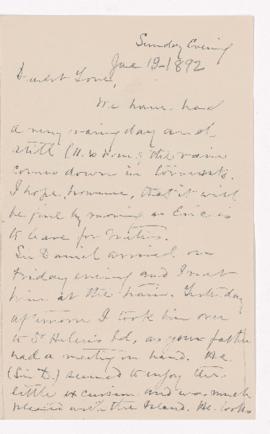 Sunday Evening
June 19-1892
Dearest Love,
We have had
a very rainy day and
still (11.30 P.m.) the rain
comes down in torrents.
I hope, however, that it will
be fine by morning as Eric is
to leave for
Sir Daniel arrived on
Friday evening and I met
him at the train. Yesterday
afternoon I took him over
to St Helen's Isd, as your father
had a meeting on hand. He
(Sir D.) seemed to enjoy the
little excursion and was much
pleased with the Island. He looks